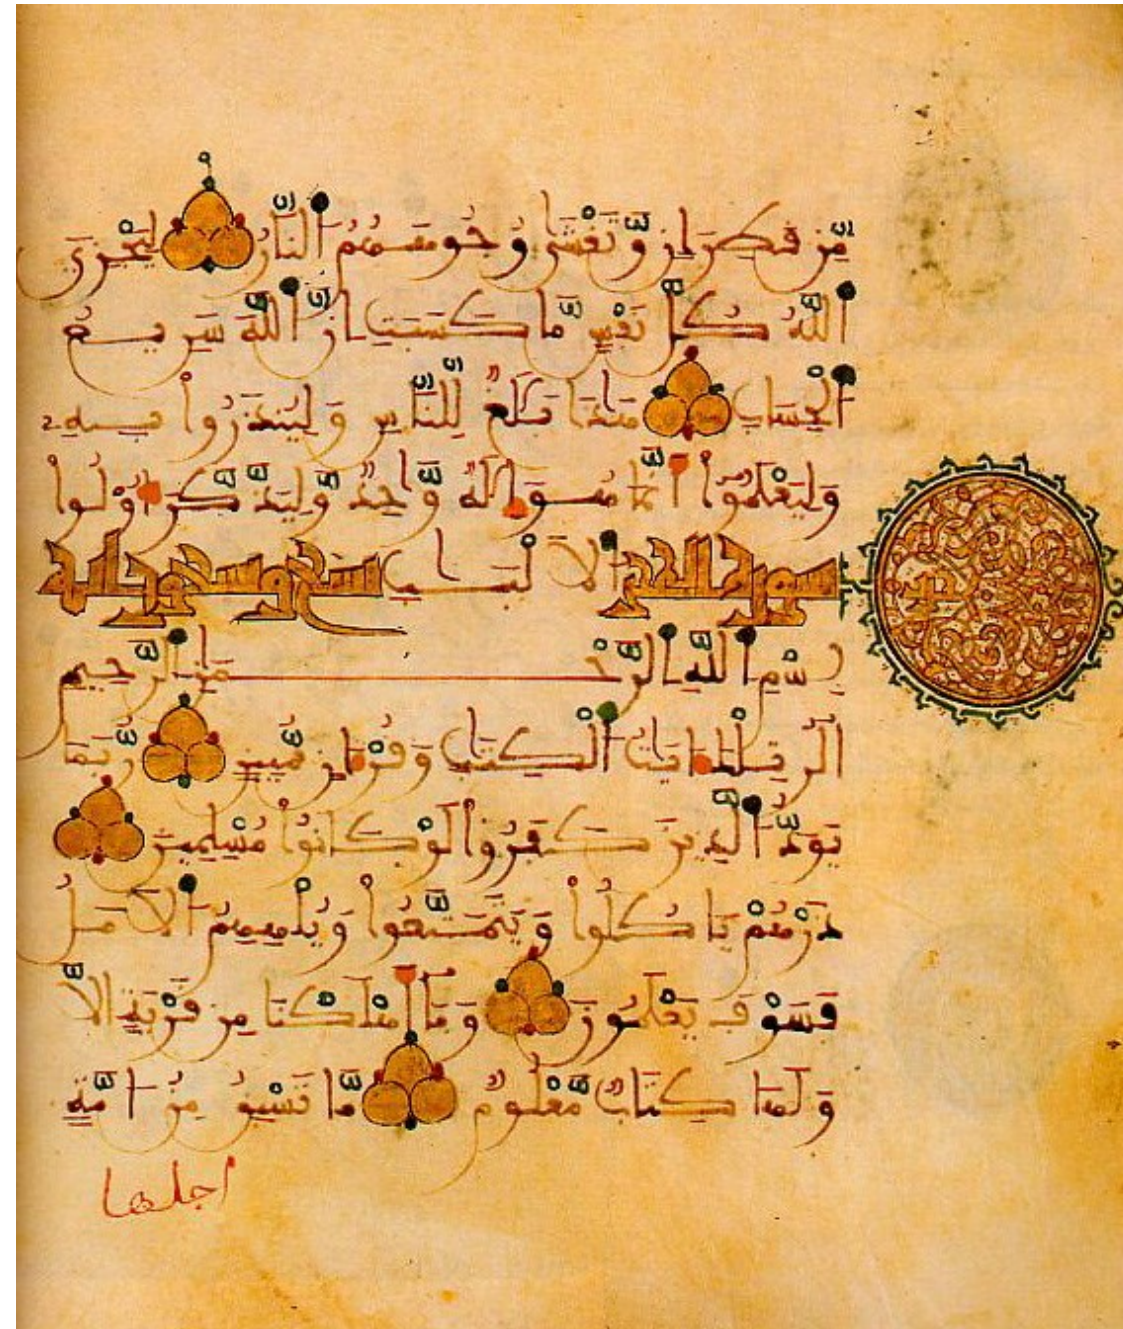 مِّن قَطِرَانٍ وَّتَغْشَىٰ وُجُوهَهُمُ النَّارُ لِيَجْزِيَ
اللَّهُ كُلَّ نَفْسٍ مَّا كَسَبَتِ اِنَّ اللَّهَ سَرِيعُ
الْحِسَابِ هَٰذَا بَلَٰغٌ لِّلنَّاسِ وَلِيُنذَرُوا بِهِۦ
وَلِيَعْلَمُوٓا أَنَّمَا هُوَ إِلَٰهٌ وَّٰحِدٌ وَّلِيَذَّكَّرَ أُوْلُوا
سورة الحجر الَالْبَٰبِ تسع وتسعون اية
بِسْمِ اللَّهِ الرَّحْمَٰنِ الرَّحِيمِ
الٓر تِلْكَ ءَايَٰتُ الْكِتَٰبِ وَقُرْءَانٍ مُّبِينٍ رُّبَمَا
يَوَدُّ الَّذِينَ كَفَرُوا لَوْ كَانُوا مُسْلِمِينَ
ذَرْهُمْ يَاكُلُوا وَيَتَمَتَّعُوا وَيُلْهِهِمُ الَامَلُ
فَسَوْفَ يَعْلَمُونَ وَمَآ أَهْلَكْنَا مِن قَرْيَةٍ اِلَّا
وَلَهَا كِتَابٌ مَّعْلُومٌ مَّا تَسْبِقُ مِنُ امَّةٍ
اجلها